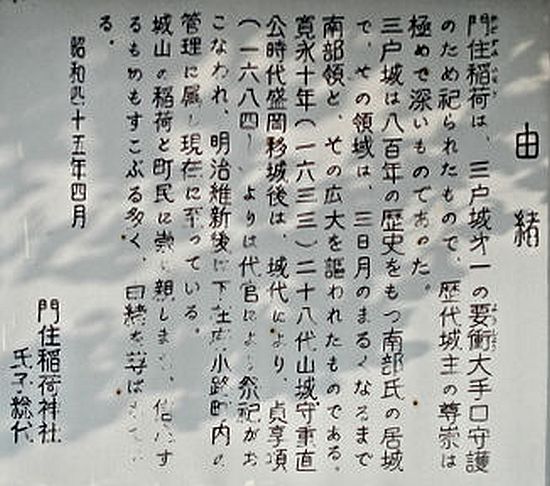 由緒
門住稲荷は、三戸城才一の要衝大手口守護
のため祀られたもので、歴代城主の尊崇は
極めて深いものであった。
三戸城は八百年の歴史をもつ南部氏の居城
で、その領域は、三日月のまるくなるまで
南部領と、その広大を謳われたものである。
寛永十年(一六三三)二十八代山城守重直
公時代盛岡移城後は、城代により、貞享項
(一六八四)よりは代官により祭祀がお
こなわれ、明治維新後は下在府小路町内の
管理に属し現在に至っている。
城山の稲荷と町民に崇し親しまれ、信仰す
るものもすこぶる多く、由緒を尊ばれてい
る。
昭和四十五年四月
門住稲荷神社
氏子総代